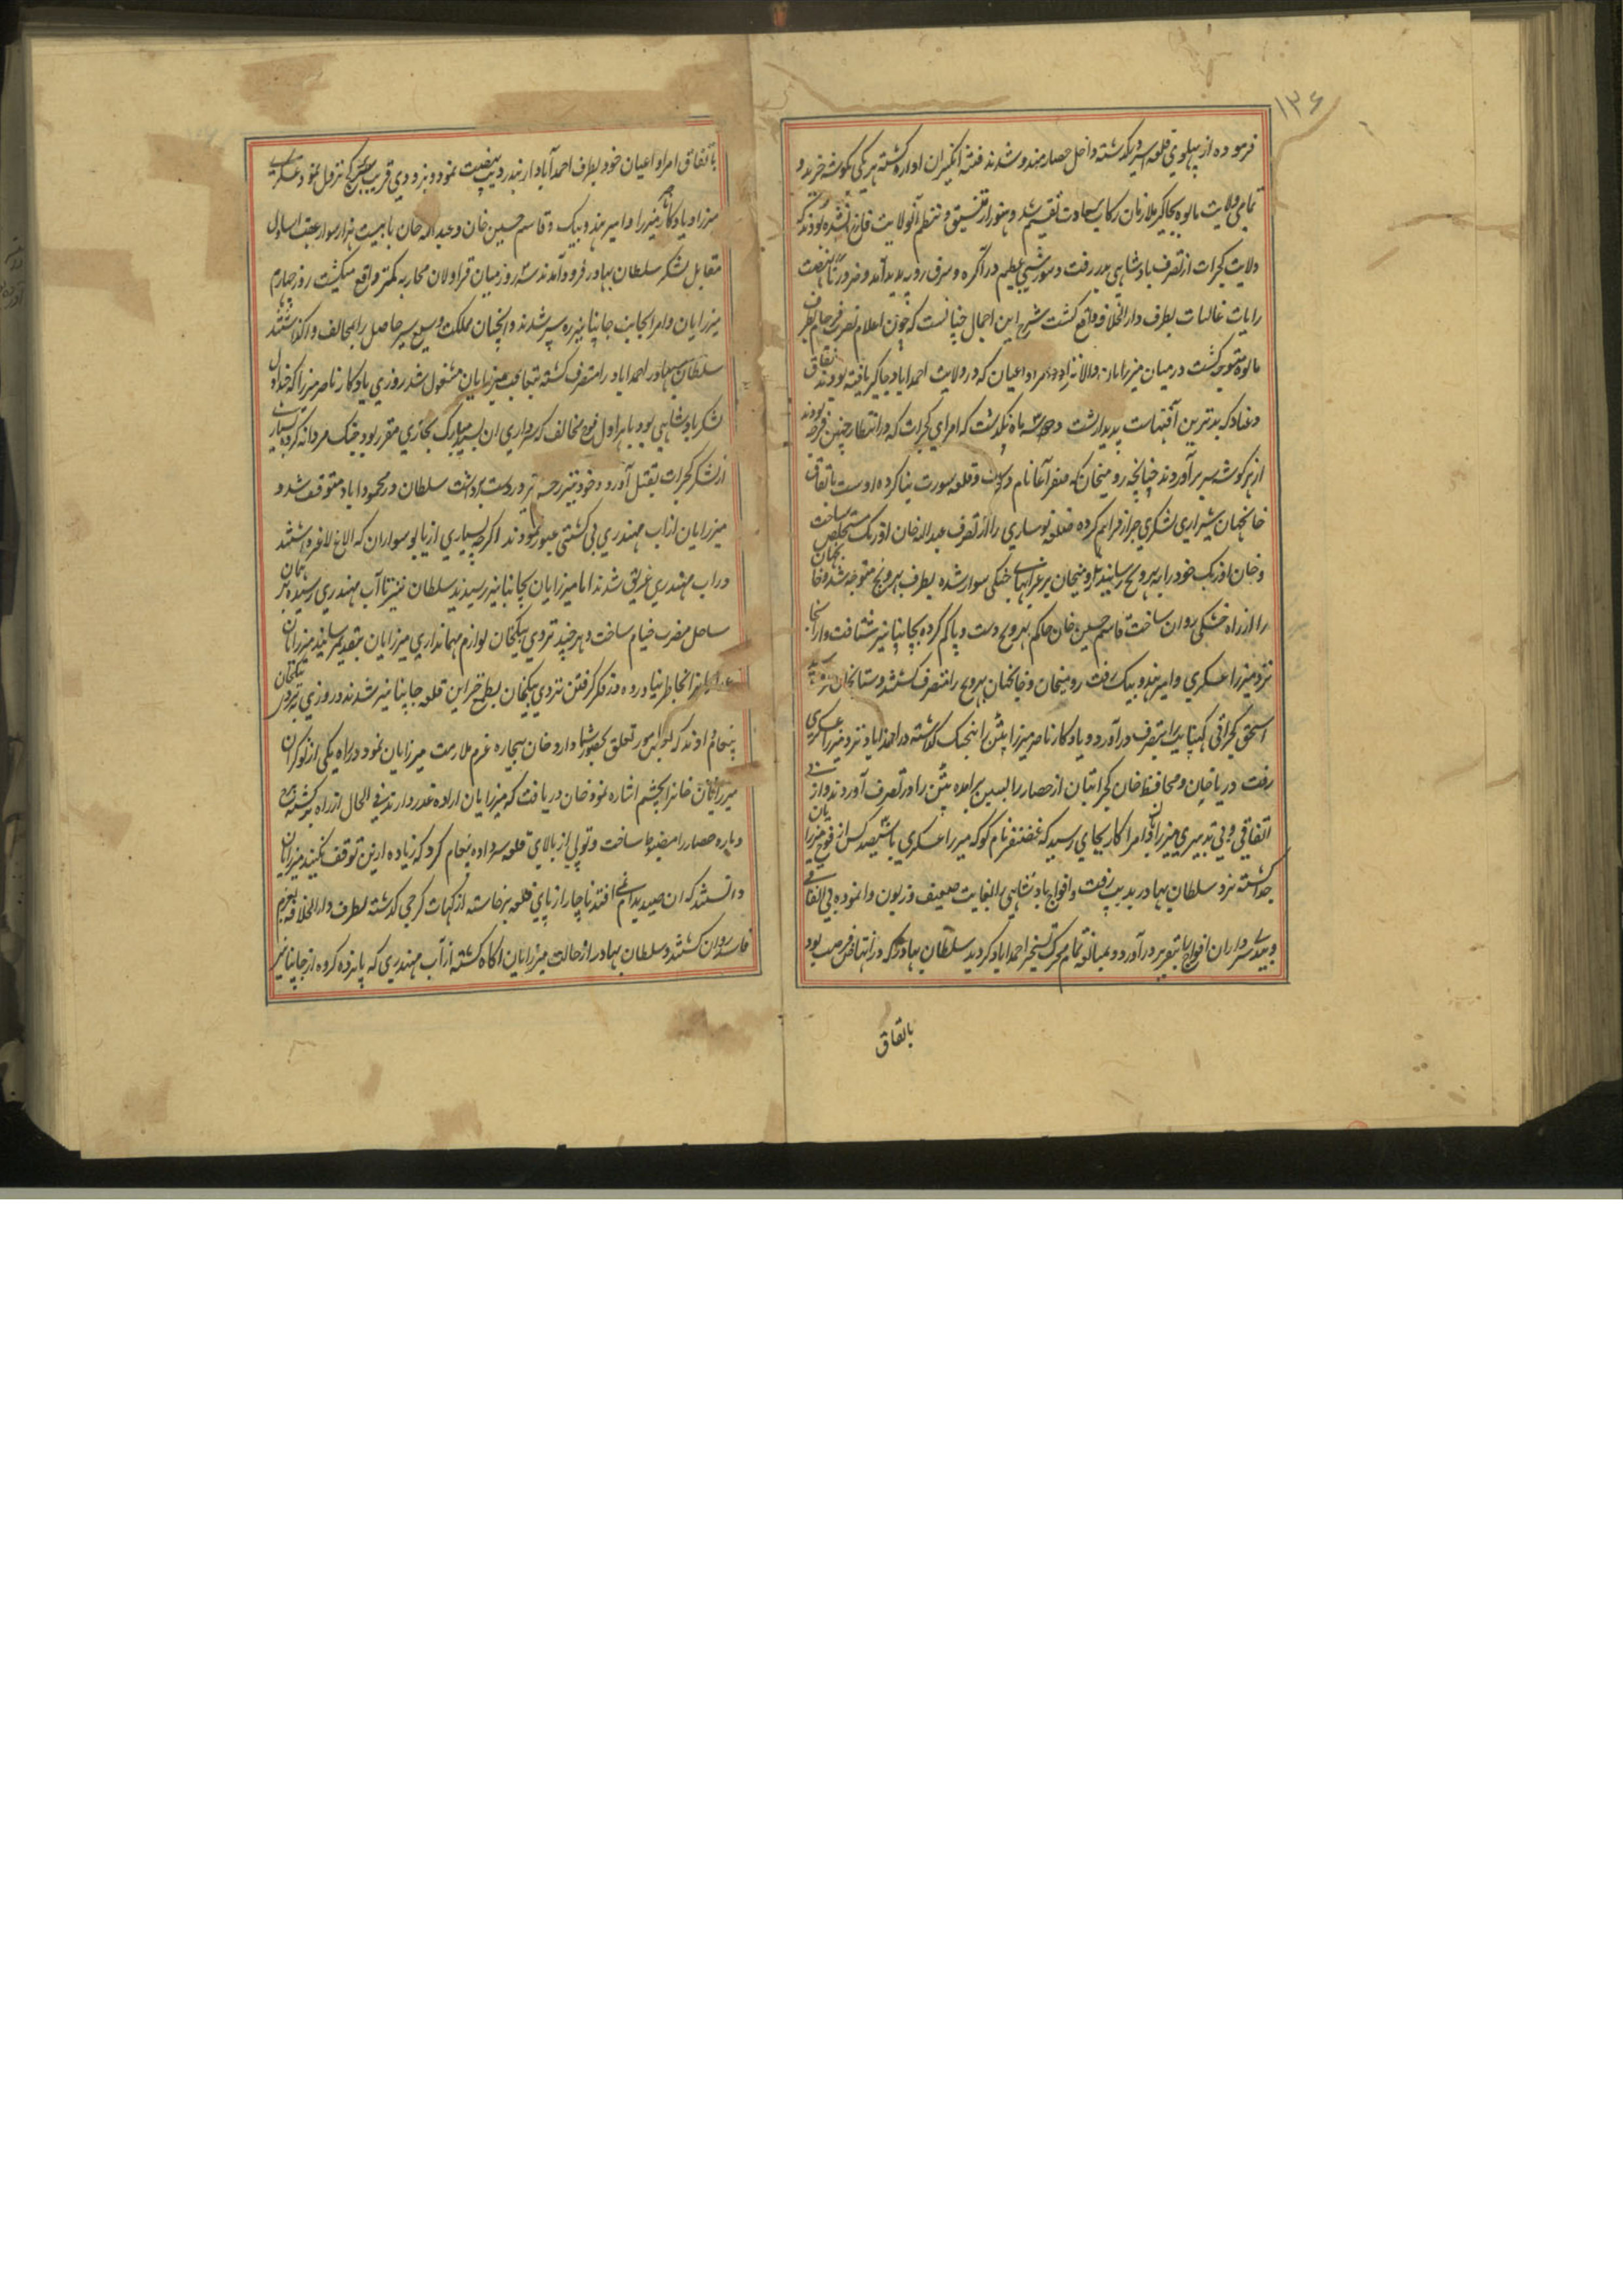 ۱۳۶
فرموده از پهلوی قلعه اسیر گذشته داخل حصار مندو شدند فتنه انگیزان اواره گشته هر یکی بگوشه خزید و
تمامی ولایت مالوه بجاگیر ملازمان رکاب سعادت تقسیم شد و هنوز از تنسیق و تنظیم آنولایت فارغ نشده بودند که
ولایت گجرات از تصرف پادشاهی بدر رفت و شورشی عظیم در آگره و شرق رویه پدید آمد و ضرورتا نهضت
رایات عالیات بطرف دارالخلافه واقع گشت شرح این اجمال چنانست که چون اعلام نصرت فرجام بطرف
مالوه متوجه گشت درمیان میرزایان والانژاد و امرا و اعیان که در ولایت احمداباد جاگیر یافته بودند نفاق
و عناد که بدترین آفتهاست پدیدار گشت و سه ماه نگذشت که امرای گجرات که در انتظار چنین فرصه بودند
از هر گوشه سر برآوردند چنانچه رومیخان که صفر آغا نام داشت و قلعه سورت بنا کرده اوست باتفاق
خانجهان شیرازی لشکری جرار فراهم کرده قلعه نوساری را از تصرف عبدالله خان اوزبک مستخلص ساخت
و خان اوزبک خود را به بهروج رسانید و رومیخان بر غرابهای جنگی سوار شده بطرف بهروج متوجه شد و خانجهان
را از راه خشکی روان ساخت قاسم حسین خان حاکم بهروج دست و پا گم کرده بچاپانیر شتافت و از انجا
نزد میرزا عسکری و امیر هندو بیک رفت رومیخان و خانجهان بهروج را متصرف گشتند و ستانجان
اسحق گجراتی کهنبایت را بتصرف درآورد و یادگار ناصر میرزا پتن را بجنگ گذاشته در احمداباد نزد میرزا عسکری
رفت دریاخان و محافظ خان گجراتیان از حصار رایسین برامده پتن را در تصرف آوردند و از بی
اتفاقی و بی تدبیری میرزایان و امرا کار بجای رسید که غضنفر نام کوکه میرزا عسکری با سیصد کس از فوج میرزایان
جدا گشته نزد سلطان بهادر بدیب رفت و افواج پادشاهی را بغایت ضعیف و زبون وانموده بی اتفاقی
سرداران افواج بتقریر درآورد و بمبالغه تمام محرک تسخیر احمداباد گردید سلطان بهادر که در انتهاز فرصت بود
باتفاق
باتفاق امرا و اعیان خود بطرف احمدآباد از بندر دیب نهضت نمود و بزودی قریب سرگنج نزول نمود عسکری
میرزا و یادگار ناصر میرزا و امیر هندو بیک و قاسم حسین خان و عبدالله خان با بیست هزار سوار عقب اساول
مقابل لشکر سلطان بهادر فرود آمدند سه روز میان قراولان محاربه کمتر واقع میگشت روز چهارم
میرزایان و امرا بجانب چاپانیر ره سپر شدند و انچنان مملکت وسیع سیر حاصل را بمخالف واگذاشتند
سلطان بهادر احمداباد را متصرف گشته بتعاقب میرزایان مشغول شد روزی یادگار ناصر میرزا که چنداول
لشکر پادشاهی بود با هراول فوج مخالف که سرداری ان بسید مبارک بخاری مقرر بود جنگ مردانه کرده بسیاری
از لشکر گجرات بقتل آورد و خود نیز زخم بر دست برداشت سلطان در محموداباد متوقف شد و
میرزایان از اب مهندری بی کشتی عبور نمودند اگرچه بسیاری از یابو سواران که الاغ لاغر داشتند
در اب مهندری غریق شدند اما میرزایان بچاپانیر رسیدند سلطان نیز تا آب مهندری رسیده بر همان
ساحل مضرب خیام ساخت و هر چند تردی بیگخان لوازم مهمانداری میرزایان بتقدیم رسانید میرزایان
انرا بخاطر نیاورده در فکر گرفتن تردی بیگخان بطمع خزاین قلعه چاپانیر شدند و روزی بتردی بیگخان
پیغام دادند که لوامور تعلق بحضور شما دارد خان بیچاره عزم ملازمت میرزایان نمود در راه یکی از نوکران
میرزایان خانرا بچشم اشاره نمود خان دریافت که میرزایان اراده غدر دارند فی الحال از راه برگشته برج
و باره حصار را مضبوط ساخت و توپی از بالای قلعه سر داده پیغام کرد که زیاده ازین توقف نکنید میرزایان
دانستند که ان صید بدام نمی افتد ناچار از پای قلعه برخاسته از گهات کرجی گذشته بطرف دارالخلافه بعزم
فاسد روان گشتند و سلطان بهادر از حالت میرزایان اگاه گشته از آب مهندری که پانزده کروه از چاپانیر